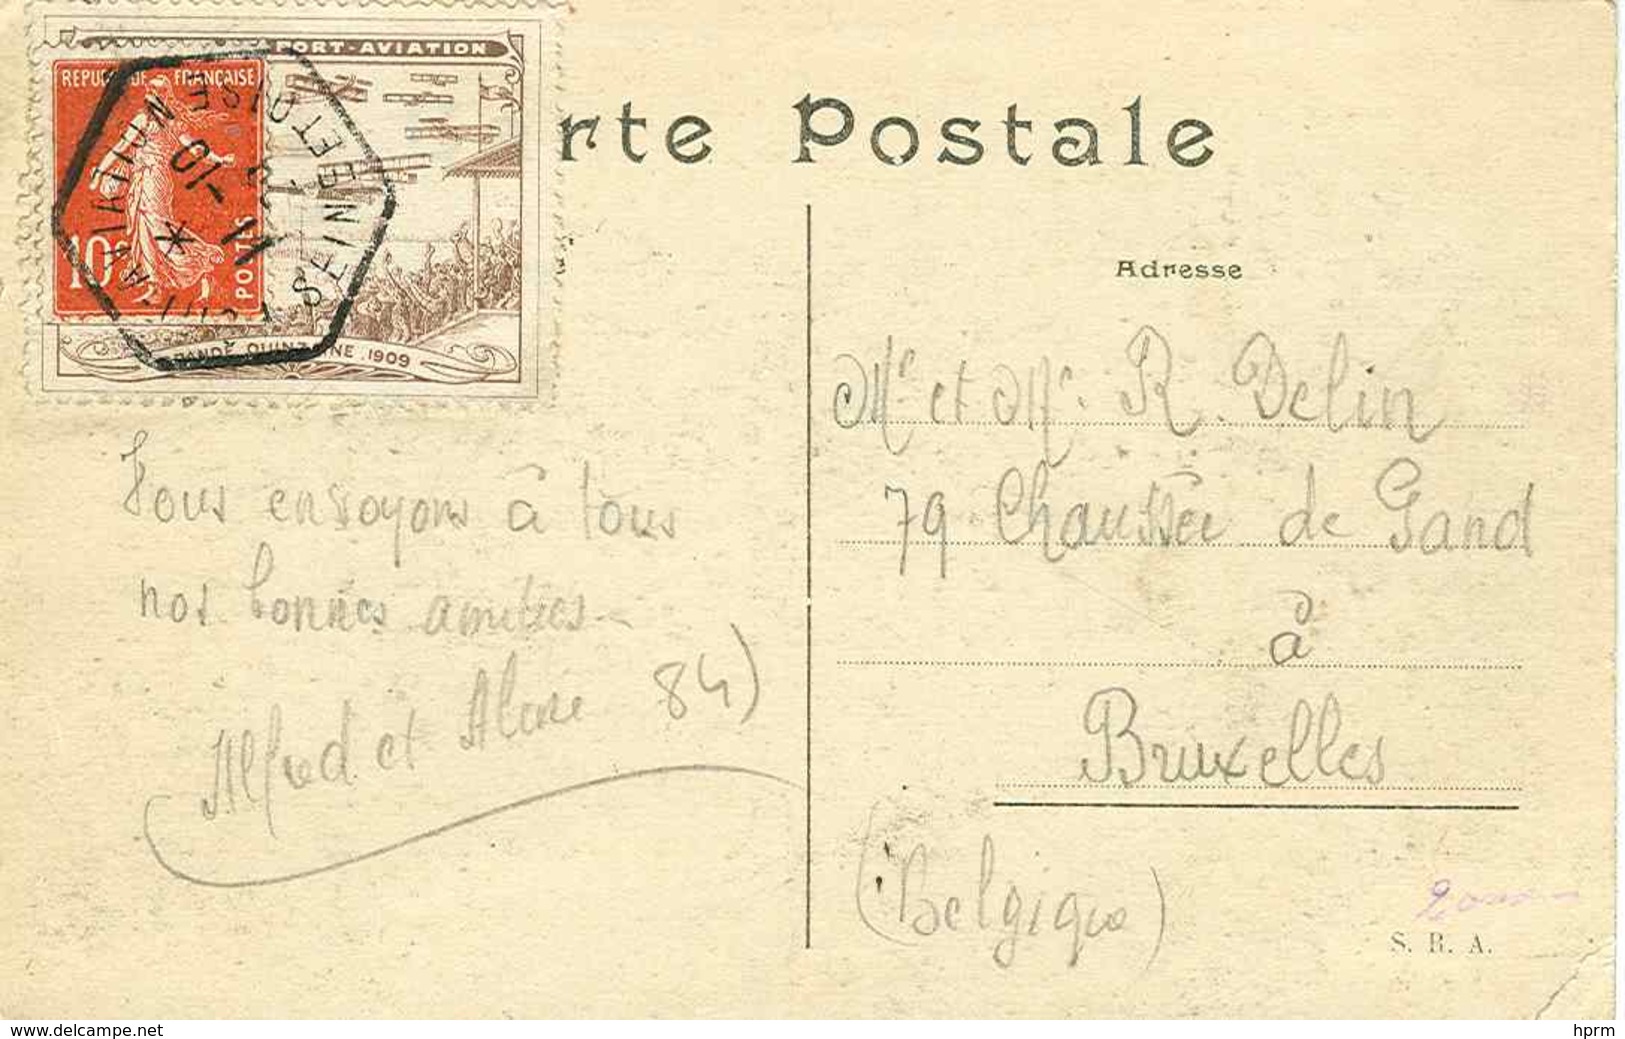 PORT-AVIATION
REPUBLIQUE FRANÇAISE
10c
POSTES
PORT-AVIATION
SEINE ET OISE
10 -10
11
GRANDE QUINZAINE 1909
Carte Postale
Adresse
Mr et Me. R. Delin
79 Chaussée de Gand
à
Bruxelles
(Belgique)
S. R. A.
Vous envoyons à tous
nos bonnes amitiés
Alfred et Aline 84)
www.delcampe.net
hprm